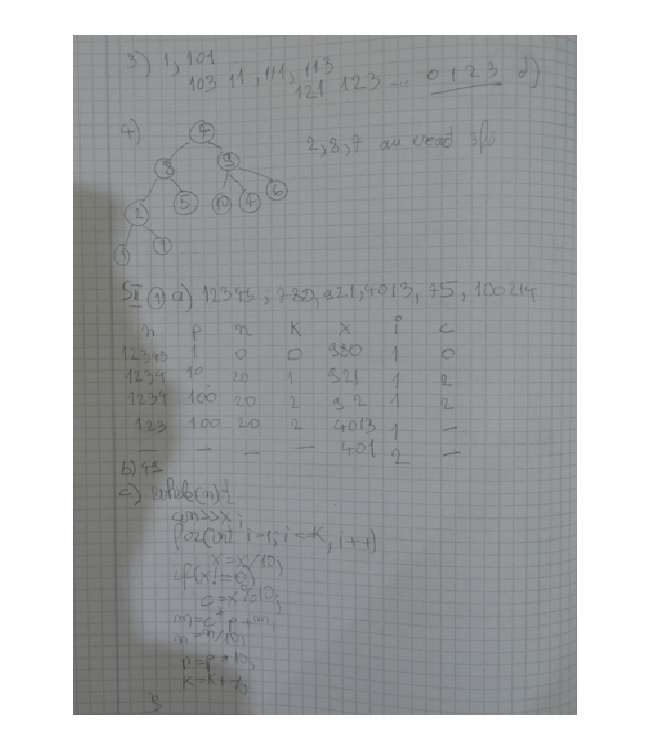 3) 1, 101
103 11, 111, 113
121 123 ... 0123 d)
4) 4
2, 8, 7 au exact 3
8 9
2 5 10 4 6
1 1
SII ① a) 12345, 780, 921, 4013, 75, 100214
n p m K x i c
12345 1 0 0 980 1 0
1234 10 20 1 921 1 2
1234 100 20 2 92 1 2
123 100 20 2 4013 1 —
— — — — 401 2 —
b) 49
c) while(n){
cin>>x;
for(int i=1; i<=K, i++)
x=x/10;
if(x!=0)
c=x%10;
m=c*p+m;
n=n/10;
p=p*10;
K=K+1;
}